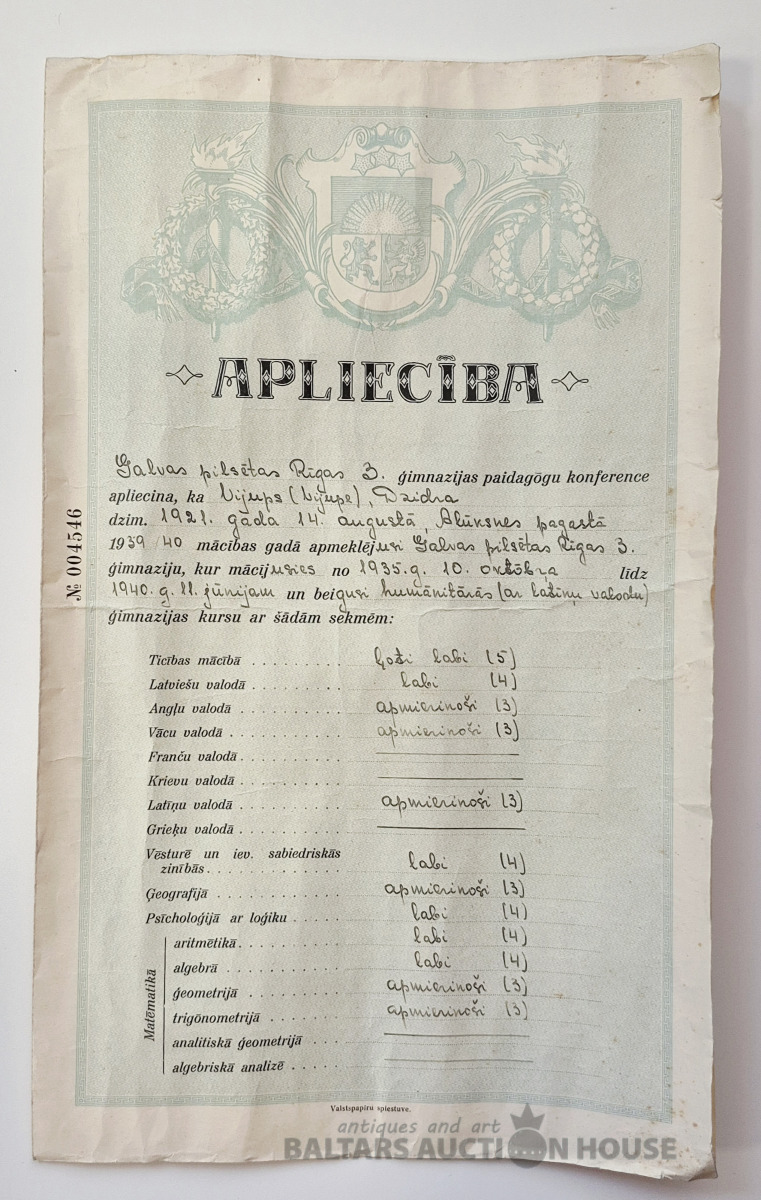 APLIECĪBA
Galvas pilsētas Rīgas 3. ģimnazijas paidagōgu konference
apliecina, ka Vijups (Vijupe), Dzidra
dzim. 1921. gada 14. augustā, Alūksnes pagastā
1939/40 mācības gadā apmeklējusi Galvas pilsētas Rīgas 3.
ģimnaziju, kur mācījusies no 1935.g. 10. oktōbra līdz
1940. g. 11. jūnijam un beigusi humānitārās (ar latīņu valodu)
ģimnazijas kursu ar šādām sekmēm:
№ 004546
Ticības mācībā ļoti labi (5)
Latviešu valodā labi (4)
Angļu valodā apmierinoši (3)
Vācu valodā apmierinoši (3)
Franču valodā
Krievu valodā
Latīņu valodā apmierinoši (3)
Grieķu valodā
Vēsturē un iev. sabiedriskās
zinībās labi (4)
Ģeografijā apmierinoši (3)
Psīcholoģijā ar loģiku labi (4)
Matēmatikā
aritmētikā labi (4)
algebrā labi (4)
ģeometrijā apmierinoši (3)
trigōnometrijā apmierinoši (3)
analitiskā ģeometrijā
algebriskā analizē
Valstspapīru spiestuve.
antiques and art
BALTARS AUCTION HOUSE